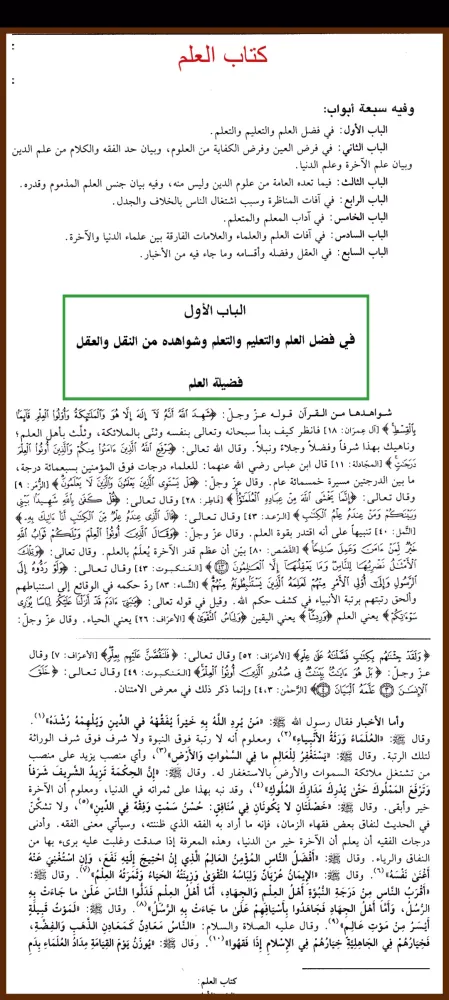 كتاب العلم
وفيه سبعة أبواب:
الباب الأول: في فضل العلم والتعليم والتعلم.
الباب الثاني: في فرض العين وفرض الكفاية من العلوم، وبيان حد الفقه والكلام من علم الدين
وبيان علم الآخرة وعلم الدنيا.
الباب الثالث: فيما تعده العامة من علوم الدين وليس منه، وفيه بيان جنس العلم المذموم وقدره.
الباب الرابع: في آفات المناظرة وسبب اشتغال الناس بالخلاف والجدل.
الباب الخامس: في آداب المعلم والمتعلم.
الباب السادس: في آفات العلم والعلماء والعلامات الفارقة بين علماء الدنيا والآخرة.
الباب السابع: في العقل وفضله وأقسامه وما جاء فيه من الأخبار.
الباب الأول
في فضل العلم والتعليم والتعلم وشواهده من النقل والعقل
فضيلة العلم
شواهدها من القرآن قوله عزّ وجلّ: ﴿شَهِدَ اللَّهُ أَنَّهُ لَا إِلَهَ إِلَّا هُوَ وَالْمَلَائِكَةُ وَأُولُو الْعِلْمِ قَائِمًا
بِالْقِسْطِ﴾ [آل عِمرَان: ١٨] فانظر كيف بدأ سبحانه وتعالى بنفسه وثنّى بالملائكة، وثلّث بأهل العلم؛
وناهيك بهذا شرفاً وفضلاً وجلاءً ونبلاً. وقال الله تعالى: ﴿يَرْفَعِ اللَّهُ الَّذِينَ آمَنُوا مِنكُمْ وَالَّذِينَ أُوتُوا الْعِلْمَ
دَرَجَاتٍ﴾ [المجَادلة: ١١] قال ابن عباس رضي الله عنهما: للعلماء درجات فوق المؤمنين بسبعمائة درجة،
ما بين الدرجتين مسيرة خمسمائة عام. وقال عزّ وجلّ: ﴿قُلْ هَلْ يَسْتَوِي الَّذِينَ يَعْلَمُونَ وَالَّذِينَ لَا يَعْلَمُونَ﴾ [الزُّمَر: ٩]
وقال تعالى: ﴿إِنَّمَا يَخْشَى اللَّهَ مِنْ عِبَادِهِ الْعُلَمَاءُ﴾ [فَاطِر: ٢٨] وقال تعالى: ﴿قُلْ كَفَى بِاللَّهِ شَهِيدًا بَيْنِي
وَبَيْنَكُمْ وَمَنْ عِندَهُ عِلْمُ الْكِتَابِ﴾ [الرّعد: ٤٣] وقال تعالى: ﴿قَالَ الَّذِي عِندَهُ عِلْمٌ مِّنَ الْكِتَابِ أَنَا آتِيكَ بِهِ﴾
[النَّمل: ٤٠] تنبيهاً على أنه اقتدر بقوة العلم. وقال عزّ وجلّ: ﴿وَقَالَ الَّذِينَ أُوتُوا الْعِلْمَ وَيْلَكُمْ ثَوَابُ اللَّهِ
خَيْرٌ لِّمَنْ آمَنَ وَعَمِلَ صَالِحًا﴾ [القَصَص: ٨٠] بيّن أن عظم قدر الآخرة يُعلَم بالعلم. وقال تعالى: ﴿وَتِلْكَ
الْأَمْثَالُ نَضْرِبُهَا لِلنَّاسِ وَمَا يَعْقِلُهَا إِلَّا الْعَالِمُونَ﴾ [العَنكبوت: ٤٣] وقال تعالى: ﴿وَلَوْ رَدُّوهُ إِلَى
الرَّسُولِ وَإِلَى أُولِي الْأَمْرِ مِنْهُمْ لَعَلِمَهُ الَّذِينَ يَسْتَنبِطُونَهُ مِنْهُمْ﴾ [النِّساء: ٨٣] ردّ حكمه في الوقائع إلى استنباطهم
وألحق رتبتهم برتبة الأنبياء في كشف حكم الله. وقيل في قوله تعالى: ﴿يَا بَنِي آدَمَ قَدْ أَنزَلْنَا عَلَيْكُمْ لِبَاسًا يُوَارِي
سَوْآتِكُمْ﴾ يعني العلم ﴿وَرِيشًا﴾ يعني اليقين ﴿وَلِبَاسُ التَّقْوَى﴾ [الأعرَاف: ٢٦] يعني الحياء. وقال عزّ وجلّ:
﴿وَلَقَدْ جِئْنَاهُم بِكِتَابٍ فَصَّلْنَاهُ عَلَى عِلْمٍ﴾ [الأعرَاف: ٥٢] وقال تعالى: ﴿فَلَنَقُصَّنَّ عَلَيْهِم بِعِلْمٍ﴾ [الأعرَاف: ٧] وقال
عزّ وجلّ: ﴿بَلْ هُوَ آيَاتٌ بَيِّنَاتٌ فِي صُدُورِ الَّذِينَ أُوتُوا الْعِلْمَ﴾ [العَنكبوت: ٤٩] وقال تعالى: ﴿خَلَقَ
الْإِنسَانَ ٣ عَلَّمَهُ الْبَيَانَ ٤﴾ [الرَّحمٰن: ٤،٣] وإنما ذكر ذلك في معرض الامتنان.
وأما الأخبار فقال رسول الله ﷺ: «مَنْ يُرِدِ اللَّهُ بِهِ خَيْراً يُفَقِّهْهُ في الدِّينِ وَيُلْهِمْهُ رُشْدَهُ»(١).
وقال ﷺ: «العُلَمَاءُ وَرَثَةُ الأَنْبِياءِ»(٢)، ومعلوم أنه لا رتبة فوق النبوة ولا شرف فوق شرف الوراثة
لتلك الرتبة. وقال ﷺ: «يَسْتَغْفِرُ لِلْعَالِمِ ما في السَّمٰواتِ وَالأَرْضِ»(٣)، وأي منصب يزيد على منصب
من تشتغل ملائكة السموات والأرض بالاستغفار له. وقال ﷺ: «إِنَّ الحِكْمَةَ تَزِيدُ الشَّرِيفَ شَرَفاً
وَتَرْفَعُ المَمْلُوكَ حَتَّىٰ يُدْرِكَ مَدَارِكَ المُلُوكِ»(٤)، وقد نبه بهذا على ثمراته في الدنيا، ومعلوم أن الآخرة
خير وأبقى. وقال ﷺ: «خَصْلَتَانِ لا يَكُونَانِ في مُنَافِقٍ: حُسْنُ سَمْتٍ وَفِقْهٌ في الدِّينِ»(٥)، ولا تشكّن
في الحديث لنفاق بعض فقهاء الزمان، فإنه ما أراد به الفقه الذي ظننته، وسيأتي معنى الفقه. وأدنى
درجات الفقيه أن يعلم أن الآخرة خير من الدنيا، وهذه المعرفة إذا صدقت وغلبت عليه برىء بها من
النفاق والرياء. وقال ﷺ: «أَفْضَلُ النَّاسِ المُؤْمِنُ العَالِمُ الَّذِي إِنْ احْتِيجَ إِلَيْهِ نَفَعَ، وَإِنِ اسْتُغْنِيَ عَنْهُ
أَغْنَىٰ نَفْسَهُ»(٦). وقال ﷺ: «الإِيمَانُ عُرْيَانٌ وَلِبَاسُهُ التَّقْوَىٰ وَزِينَتُهُ الحَيَاءُ وَثَمَرَتُهُ العِلْمُ»(٧). وقال ﷺ:
«أَقْرَبُ النَّاسِ مِنْ دَرَجَةِ النُّبُوَّةِ أَهْلُ العِلْمِ وَالجِهَادِ، أَمَّا أَهْلُ العِلْمِ فَدَلُّوا النَّاسَ عَلَىٰ ما جَاءَتْ بِهِ
الرُّسُلُ، وَأَمَّا أَهْلُ الجِهَادِ فَجَاهَدُوا بِأَسْيَافِهِمْ عَلَىٰ ما جَاءَتْ بِهِ الرُّسُلُ»(٨). وقال ﷺ: «لَمَوْتُ قَبِيلَةٍ
أَيْسَرُ مِنْ مَوْتِ عَالِمٍ»(٩). وقال عليه الصلاة والسلام: «النَّاسُ مَعَادِنُ كَمَعَادِنِ الذَّهَبِ وَالفِضَّةِ،
فَخِيَارُهُمْ في الجَاهِلِيَّةِ خِيَارُهُمْ في الإِسْلَامِ إِذَا فَقُهُوا»(١٠). وقال ﷺ: «يُوزَنُ يَوْمَ القِيَامَةِ مِدَادُ العُلَمَاءِ بِدَمِ
كتاب العلم: